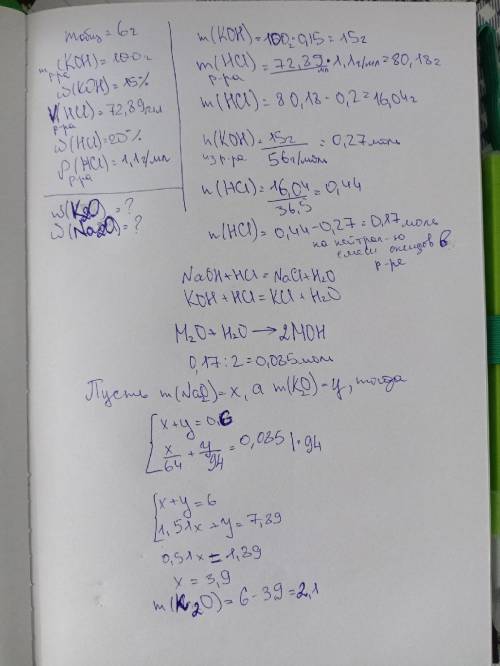 mобщ = 6г
m р-ра (KOH) = 100г
ω(KOH) = 15%
V р-ра (HCl) = 72,89мл
ω(HCl) = 20%
ρ р-ра (HCl) = 1,1г/мл
ω(K2O) = ?
ω(Na2O) = ?
m(KOH) = 100г · 0,15 = 15г
m р-ра (HCl) = 72,89мл · 1,1г/мл = 80,18г
m(HCl) = 80,18 · 0,2 = 16,04г
n(KOH) из р-ра = 15г / 56г/моль = 0,27моль
n(HCl) = 16,04 / 36,5 = 0,44
n(HCl) = 0,44 - 0,27 = 0,17 моль
на нейтрал-ю
смеси оксидов в
р-ре
NaOH + HCl = NaCl + H2O
KOH + HCl = KCl + H2O
M2O + H2O → 2MOH
0,17 : 2 = 0,085 моль
Пусть m(Na2O) = x, а m(K2O) = y, тогда
x + y = 0,6
x/64 + y/94 = 0,085 | · 94
x + y = 6
1,51x + y = 7,89
0,51x = 1,89
x = 3,9
m(K2O) = 6 - 39 = 2,1